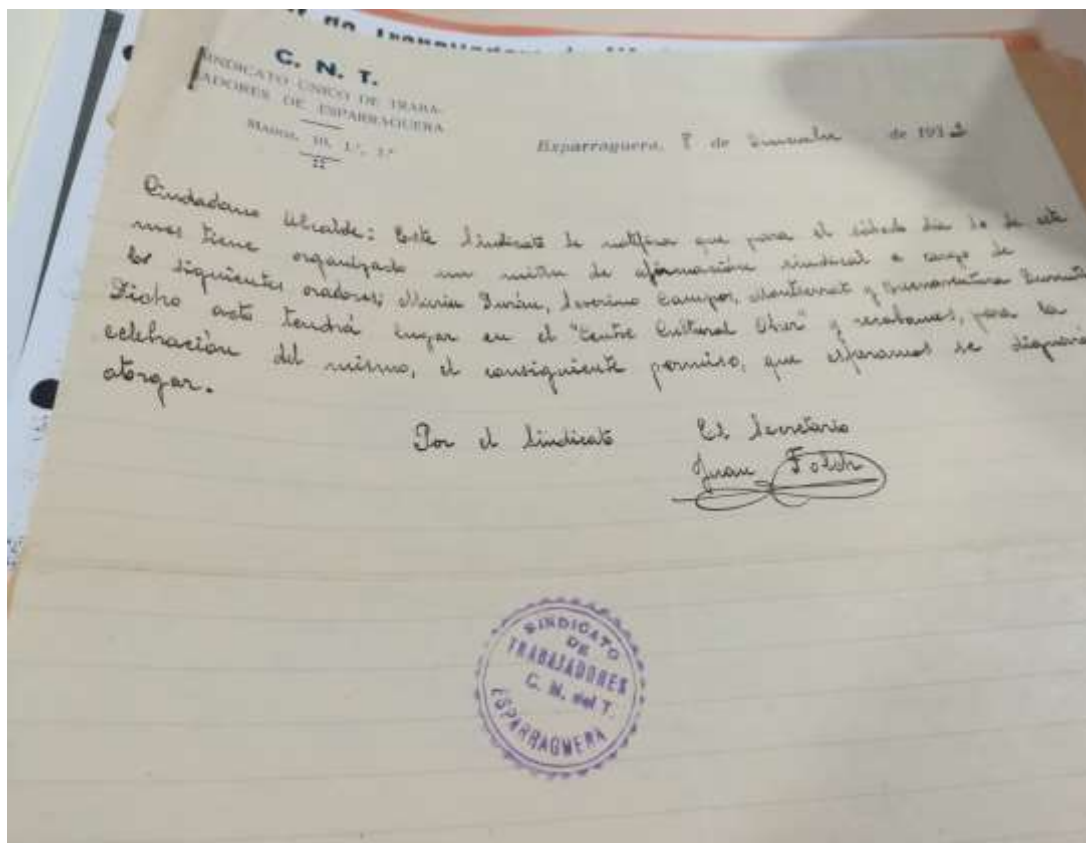 C. N. T.
SINDICATO UNICO DE TRABA-
JADORES DE ESPARRAGUERA
Esparraguera, 8 de Diciembre de 193
Ciudadano Alcalde: Este Sindicato le notifica que para el sábado dia 10 de este
mes tiene organizado un mitin de afirmación sindical a cargo de
los siguientes oradores: Durán, Severino Campos, Montserrat y Buenaventura Durruti
Dicho acto tendrá lugar en el "Centre Cultural Obrer" y recabamos, para la
celebración del mismo, el consiguiente permiso, que esperamos se dignará
otorgar.
Por el Sindicato El Secretario
Juan Folch
SINDICATO
DE
TRABAJADORES
C. N. del T.
ESPARRAGUERA